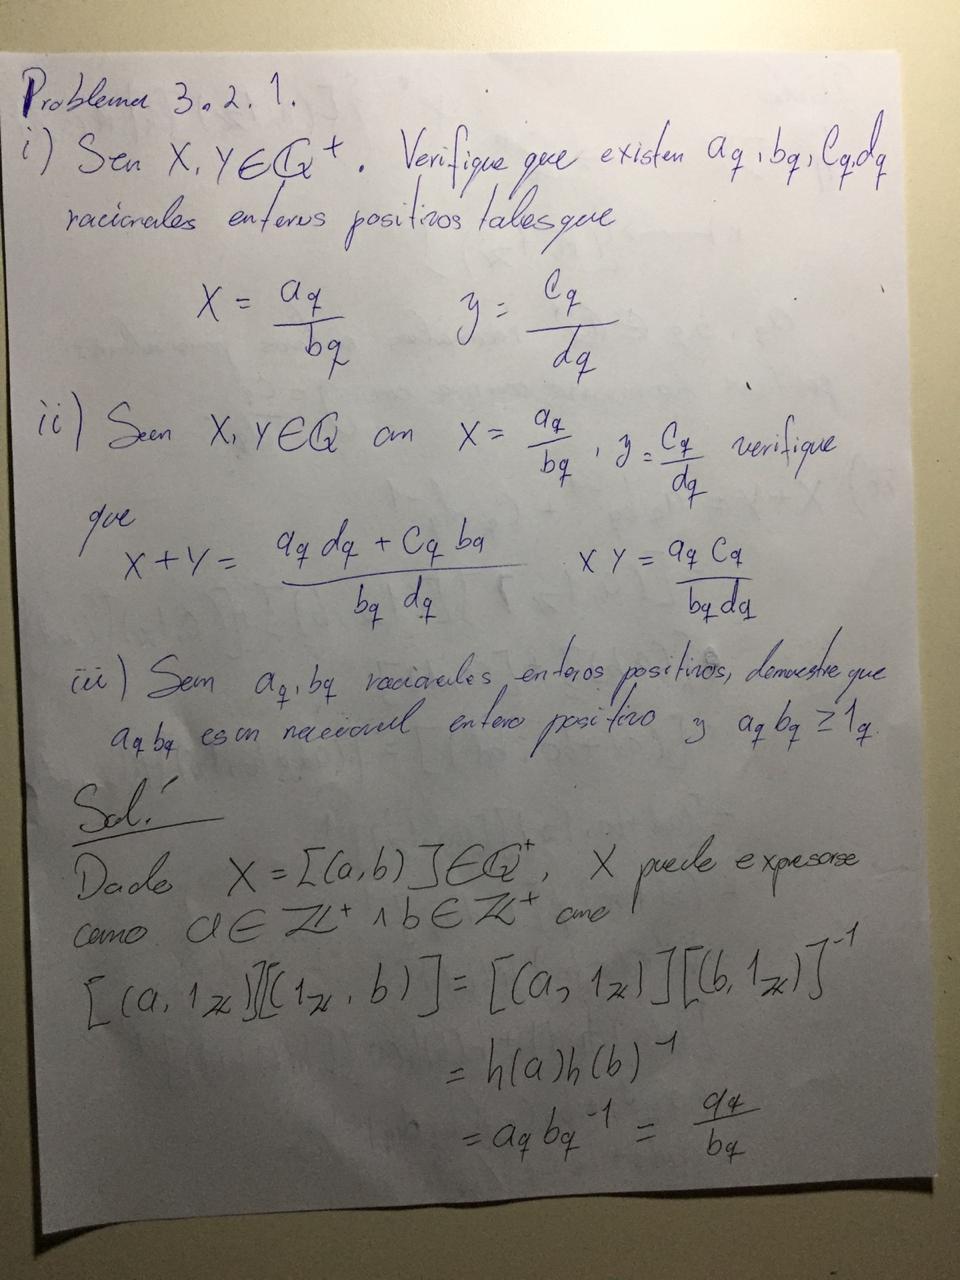 Problema 3.2.1.
i) Sean X, Y ∈ ℚ⁺. Verifique que existen a_q, b_q, c_q, d_q
racionales enteros positivos tales que
X = a_q / b_q    y = c_q / d_q
ii) Sean X, Y ∈ ℚ con X = a_q / b_q, y = c_q / d_q verifique
que
X + Y = (a_q d_q + c_q b_q) / (b_q d_q)    X Y = (a_q c_q) / (b_q d_q)
iii) Sean a_q, b_q racionales enteros positivos, demuestre que
a_q b_q es un racional entero positivo y a_q b_q ≥ 1_q.
Sol:
Dado X = [(a,b)] ∈ ℚ⁺, X puede expresarse
como a ∈ ℤ⁺ ∧ b ∈ ℤ⁺ como
[(a, 1_ℤ)][(1_ℤ, b)] = [(a, 1_ℤ)][(b, 1_ℤ)]⁻¹
= h(a)h(b)⁻¹
= a_q b_q⁻¹ = a_q / b_q